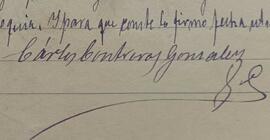 equia. Y para que conste lo firmo fecha ut
Cárlos Contreras Gonzalez